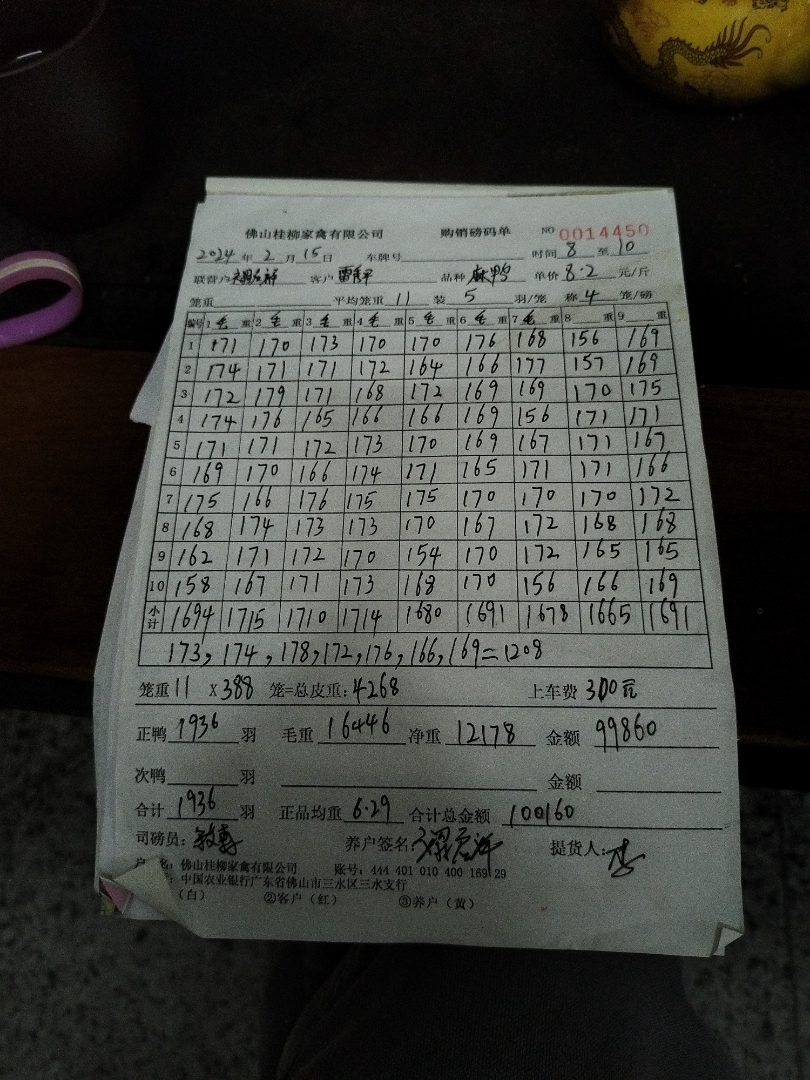 佛山桂柳家禽有限公司 购销磅码单 NO 0014450
2024年2月15日 车牌号 时间 8 至 10
联营户 客户 品种 麻鸭 单价 8.2 元/斤
笼重 平均笼重 11 装 5 羽/笼 称 4 笼/磅
编号 1 毛 重 2 毛 重 3 毛 重 4 毛 重 5 毛 重 6 毛 重 7 毛 重 8 重 9 重
1 171 170 173 170 170 176 168 156 169
2 174 171 171 172 164 166 177 157 169
3 172 179 171 168 172 169 169 170 175
4 174 176 165 166 166 169 156 171 171
5 171 171 172 173 170 169 167 171 167
6 169 170 166 174 171 165 171 171 166
7 175 166 176 175 175 170 170 170 172
8 168 174 173 173 170 167 172 168 168
9 162 171 172 170 154 170 172 165 165
10 158 167 171 173 168 170 156 166 169
小计 1694 1715 1710 1714 1680 1691 1678 1665 1691
173, 174, 178, 172, 176, 166, 169 = 1208
笼重 11 X 388 笼=总皮重: 4268 上车费 300元
正鸭 1936 羽 毛重 16446 净重 12178 金额 99860
次鸭 羽 金额
合计 1936 羽 正品均重 6.29 合计总金额 100160
司磅员: 养户签名: 提货人:
名: 佛山桂柳家禽有限公司 账号: 444 401 010 400 169 29
中国农业银行广东省佛山市三水区三水支行
(白) ②客户(红) ③养户(黄)